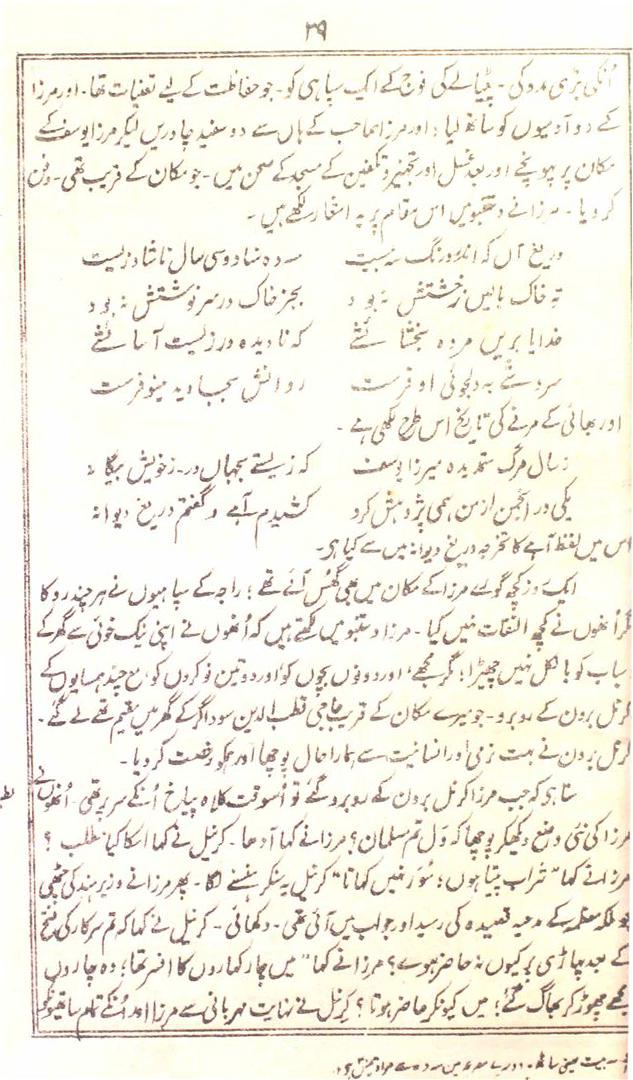 ۳۹
اُنکی بڑی مدد کی - پٹیالے کی فوج کے ایک سپاہی کو - جو حفاظت کے لیے تعینات تھا - اور مرزا
کے دو آدمیوں کو ساتھ لیا؛ اور مرزا صاحب کے ہاں سے دو سفید چادریں لیکر مرزا یوسف کے
مکان پر پہونچے اور بعد غسل اور تجہیز و تکفین کے مسجد کے صحن میں - جو مکان کے قریب تھی - دفن
کر دیا - مرزا نے دستنبو میں اس مقام پر یہ اشعار لکھے ہیں -
دریغ آں کہ اندر درنگ سہ بیست سہ دہ شاد و سی سال ناشاد زیست
تہِ خاک بالیں ز خشتش نہ بود بجز خاک در سرنوشتش نہ بود
خدایا بریں مردہ بخشایشے کہ نادیدہ در زیست آسایشے
سروشے بہ دلجوئی او فرست روانش بجاوید مینو فرست
اور بھائی کے مرنے کی تاریخ اس طرح لکھی ہے -
ز سال مرگ ستمدیدہ میرزا یوسف کہ زیستے بجہاں در ز خویش بیگانہ
یکی در انجمن از من ہمی پژوہش کرد کشیدم آہے و گفتم دریغ دیوانہ
اس میں لفظ آہے کا تخرجہ دریغ دیوانہ میں سے کیا ہی -
ایک روز کچھ گورے مرزا کے مکان میں بھی گھُس آئے تھے؛ راجہ کے سپاہیوں نے ہر چند روکا
مگر اُنھوں نے کچھ التفات نہیں کیا - مرزا دستنبو میں لکھتے ہیں کہ اُنھوں نے اپنی نیک خوئی سے گھر کے
اسباب کو بالکل نہیں چھیڑا؛ مگر مجھے، اور دونوں بچوں کو، اور دو تین نوکروں کو، مع چند ہمسایوں کے
کرنل برون کے روبرو - جو میرے مکان کے قریب حاجی قطب الدین سوداگر کے گھر میں مقیم تھے لے گئے -
کرنل برون نے بہت نرمی اور انسانیت سے ہمارا حال پوچھا اور ہمکو رخصت کر دیا -
سنا ہو کہ جب مرزا کرنل برون کے روبرو گئے تو اُسوقت کلاہ پپاخ اُنکے سر پر تھی - اُنھوں نے
مرزا کی نئی وضع دیکھکر پوچھا کہ وَل تم مسلمان؟ مرزا نے کہا آدھا - کرنل نے کہا اسکا کیا مطلب؟
مرزا نے کہا "شراب پیتا ہوں؛ سُوَر نہیں کھاتا" کرنل یہ سنکر ہنسنے لگا - پھر مرزا نے وزیر ہند کی چٹھی
جو ملکہ معظمہ کے مدحیہ قصیدہ کی رسید اور جواب میں آئی تھی - دکھائی - کرنل نے کہا کہ تم سرکار کی فتح
کے بعد پہاڑی پر کیوں نہ حاضر ہوے؟ مرزا نے کہا "میں چار کہاروں کا افسر تھا؛ وہ چاروں
مجھے چھوڑ کر بھاگ گئے؛ میں کیونکر حاضر ہوتا؟ کرنل نے نہایت مہربانی سے مرزا اور اُنکے تمام ساتھیونکو